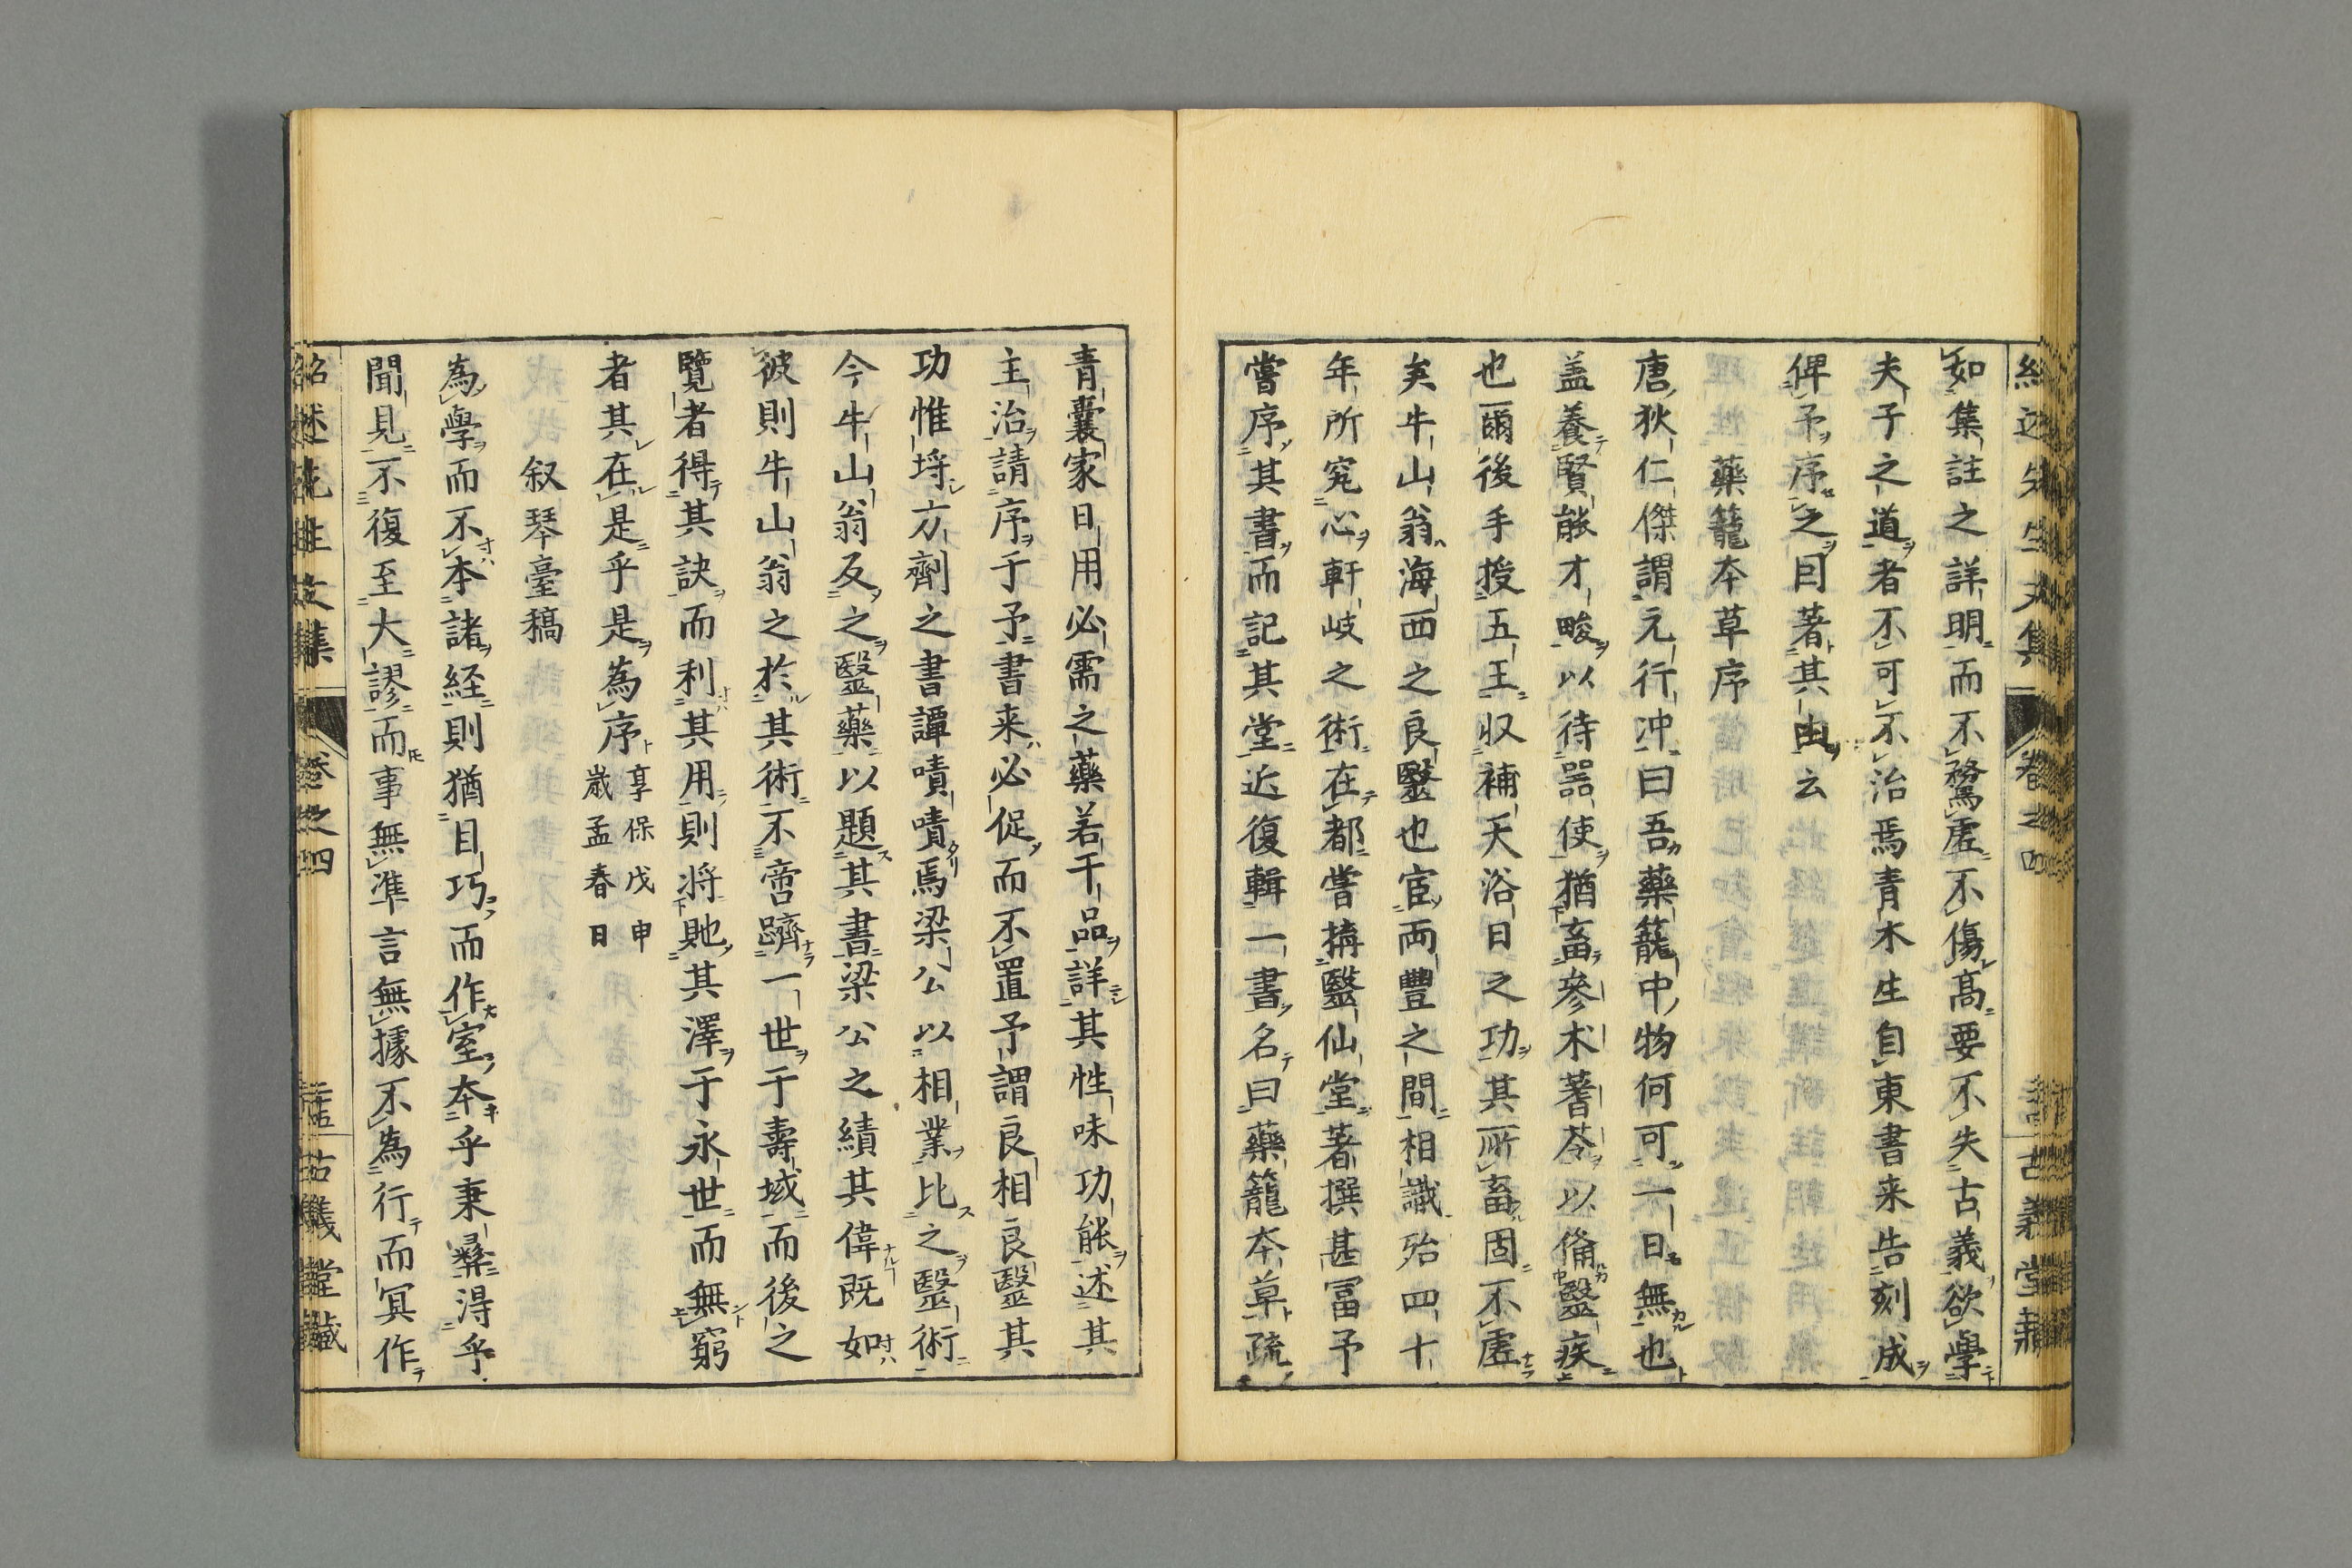 如集註之詳明而不騖虛不傷高要不失古義欲學
夫子之道者不可不治焉青木生自東書来告刻成
俾予序之因著其由云
藥籠本草序
唐狄仁傑謂元行冲曰吾藥籠中物何可一日無也
盖養賢能才畯以待器使猶畜參术蓍苓以備醫疾
也爾後手授五王収補天浴日之功其所畜固不虛
矣牛山翁海西之良醫也宦両豐之間相識殆四十
年所究心軒岐之術在都嘗搆醫仙堂著撰甚冨予
嘗序其書而記其堂近復輯一書名曰藥籠本草疏
青囊家日用必需之藥若干品詳其性味功能述其
主治請序于予書来必促而不置予謂良相良醫其
功惟埒方劑之書譚嘖嘖焉梁公以相業比之醫術
今牛山翁反之醫藥以題其書梁公之績其偉既如
彼則牛山翁之於其術不啻躋一世于壽域而後之
覽者得其訣而利其用則将貤其澤于永世而無窮
者其在是乎是為序享保戊申
歳孟春日
叙琴臺稿
為學而不本諸経則猶目巧而作室本乎秉彝得乎
聞見不復至大謬而事無準言無據不為行而冥作
紹述先生文集 卷之四 古義堂藏